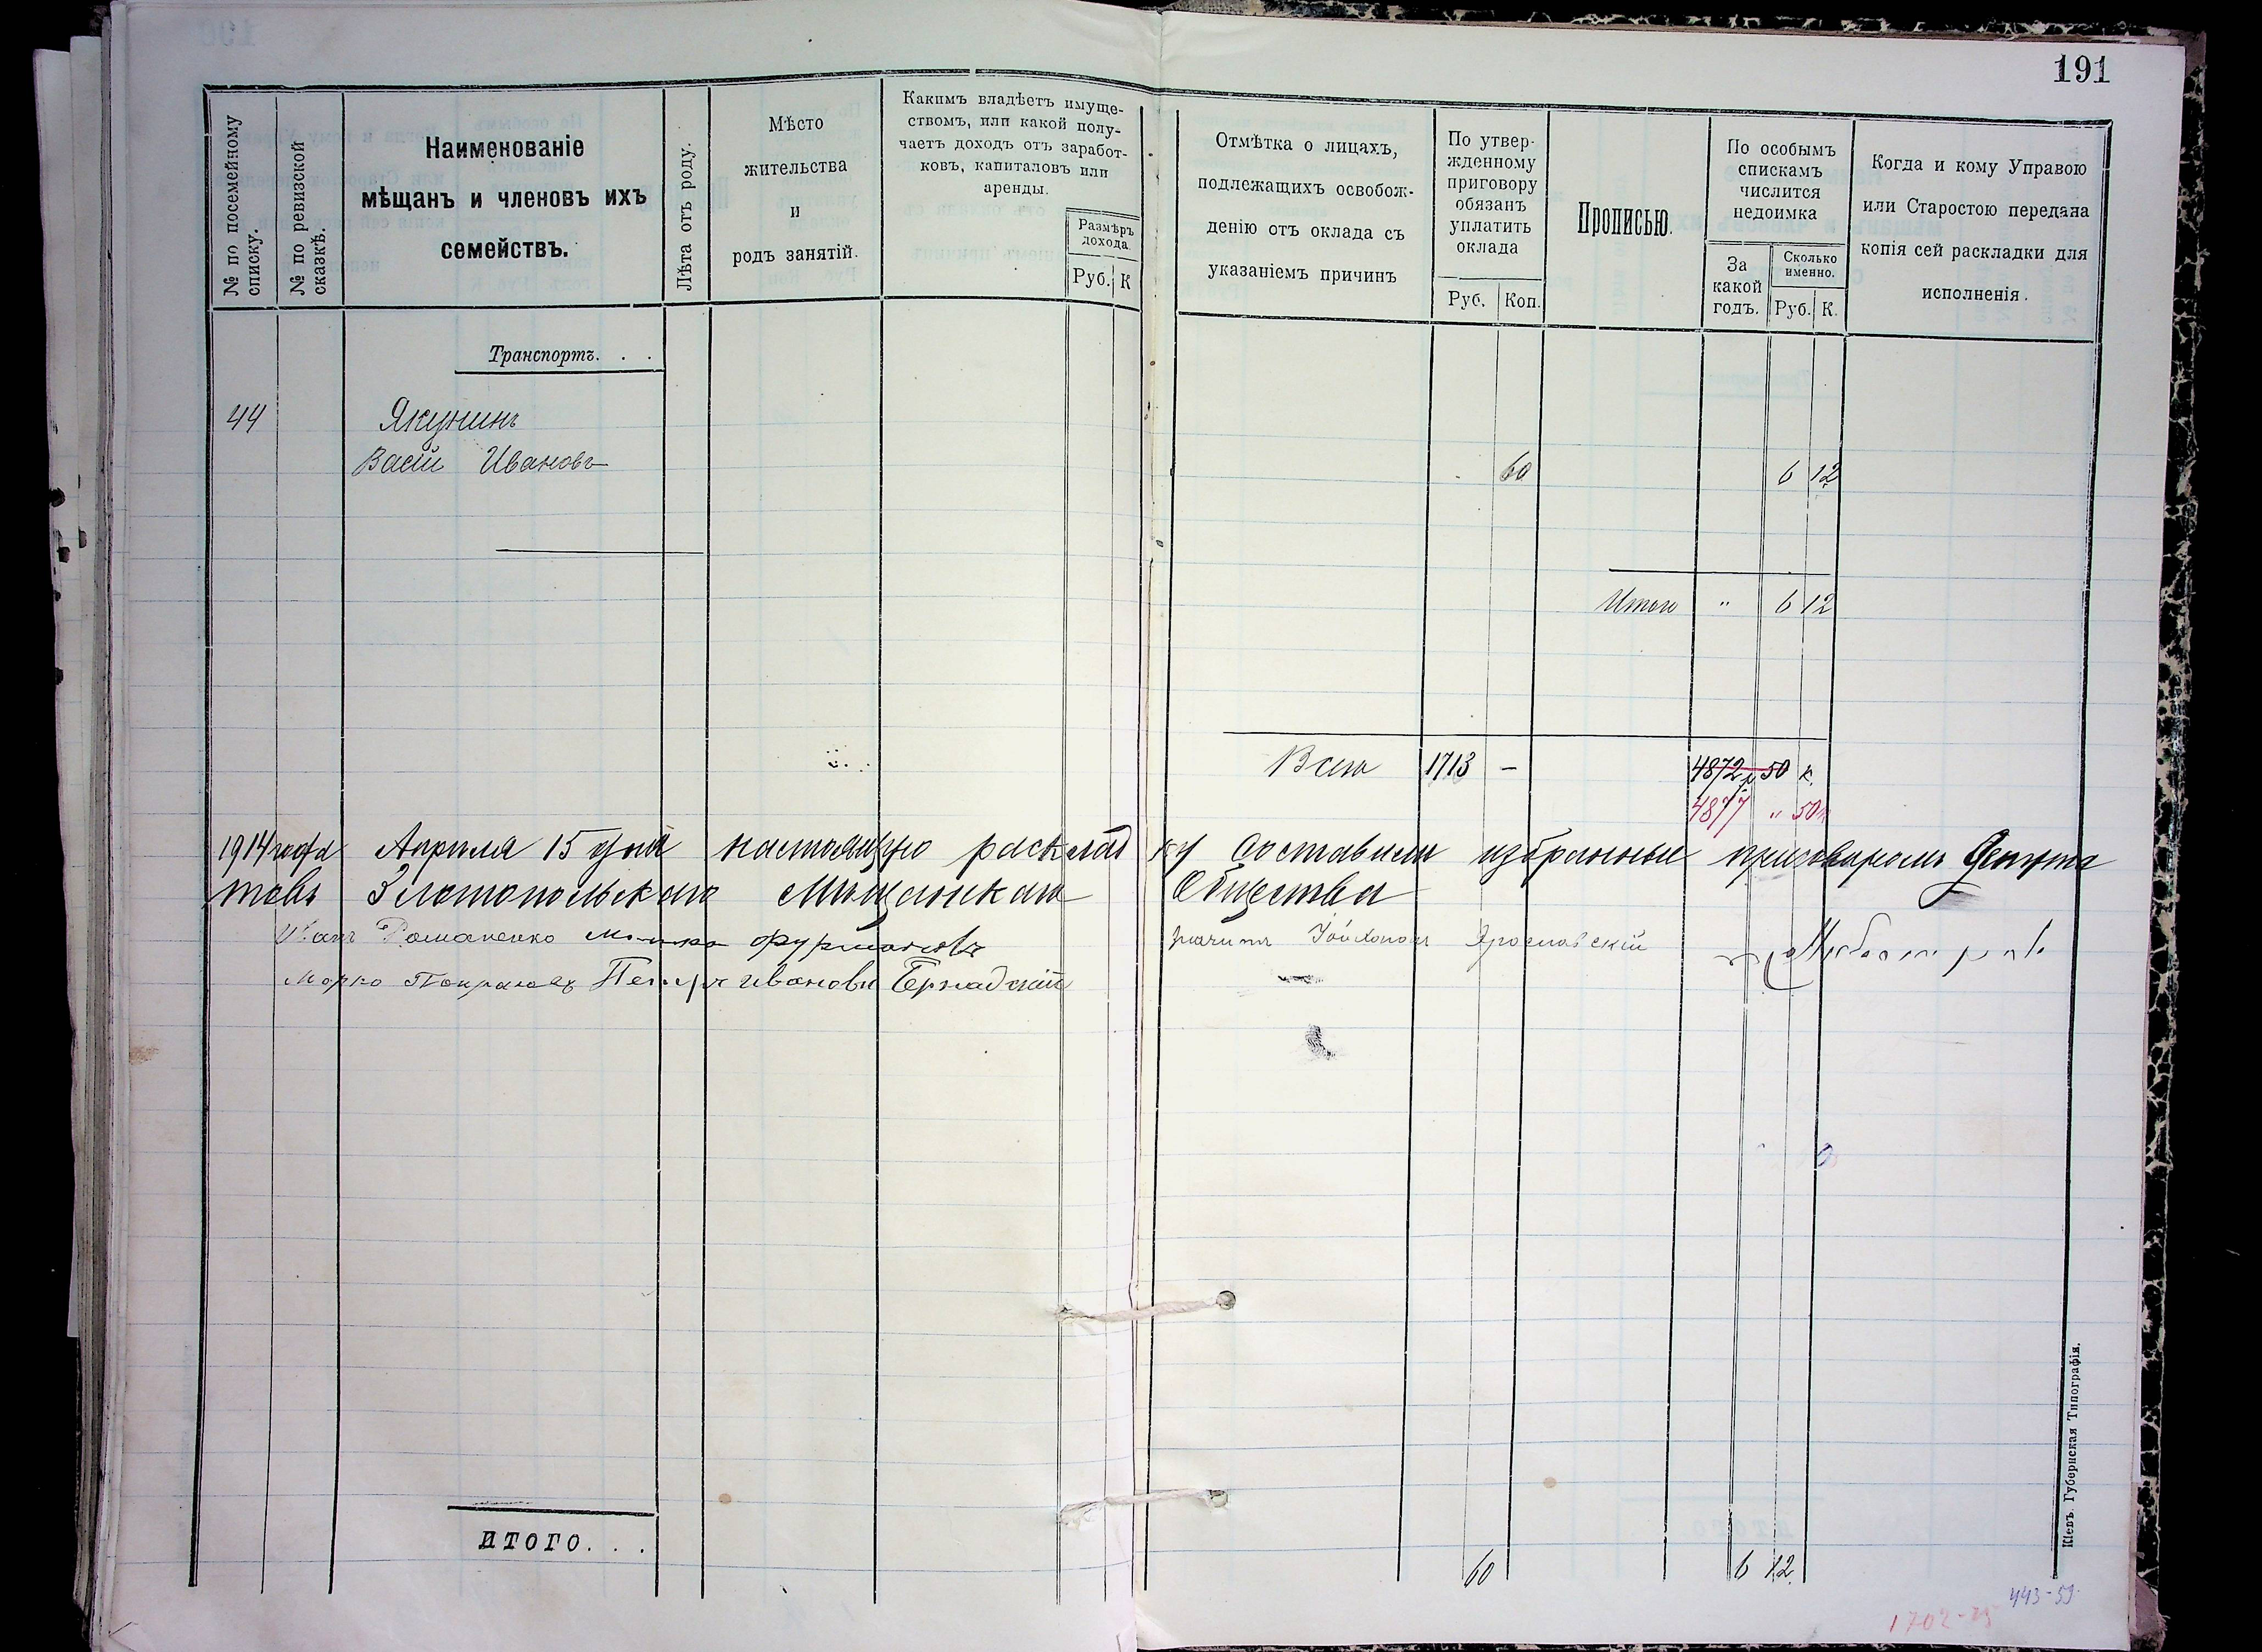 191
№ по посемейному
списку.
№ по ревизской
сказкѣ.
Наименованіе
мѣщанъ и членовъ ихъ
семействъ.
Лѣта отъ роду.
Мѣсто
жительства
и
родъ занятій.
Какимъ владѣетъ имуще-
ствомъ, или какой полу-
чаетъ доходъ отъ заработ-
ковъ, капиталовъ или
аренды.
Размѣръ
дохода.
Руб. К
Отмѣтка о лицахъ,
подлежащихъ освобож-
денію отъ оклада съ
указаніемъ причинъ
По утвер-
жденному
приговору
обязанъ
уплатить
оклада
Руб. Коп.
Прописью.
По особымъ
спискамъ
числится
недоимка
За
какой
годъ.
Сколько
именно.
Руб. К.
Когда и кому Управою
или Старостою передана
копія сей раскладки для
исполненія.
Транспортъ. . .
44 Якунинъ
Васій Ивановъ 60 6 12
Итого " 6 12
Всего 1713 — 4872 р 50 к.
4877 " 50 к
1914 года Апрѣля 15 дня настоящую расклад ку составили избранные приговоромъ Депута
товъ Златопольскаго Мѣщанскаго Общества
Иванъ Романенко Фурмановъ Ярославскій
Марко Петръ Ивановъ Бернадскій
ИТОГО. . .
60 6 12
Кіевъ. Губернская Типографія.
443-59
1702-25